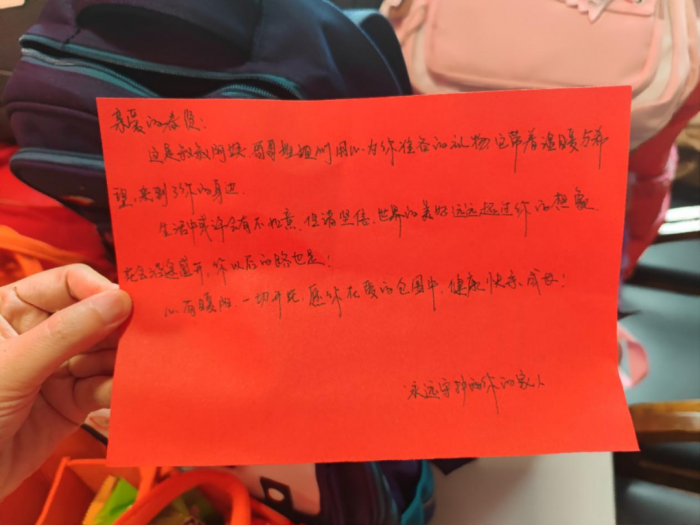 亲爱的春贝:
这是叔叔阿姨、哥哥姐姐们用心为你准备的礼物,它带着温暖与希
望,来到了你的身边。
生活中或许会有不如意,但请坚信,世界的美好远远超过你的想象。
花会沿途盛开,你以后的路也是!
心有暖阳,一切开花,愿你在爱的包围中,健康、快乐、成长!
永远守护着你的家人